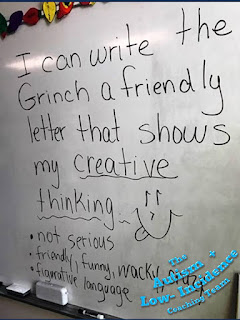 I can write the
Grinch a friendly
letter that shows
my creative
thinking
• not serious
• friendly, funny, wacky
• figurative language
The
Autism +
Low-Incidence
Coaching Team